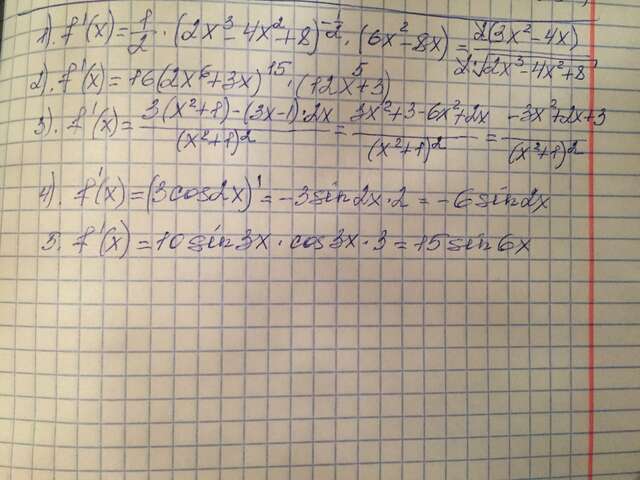 1). f'(x) = 1/2 · (2x³ - 4x² + 8)^(-1/2) · (6x² - 8x) = 2(3x² - 4x) / 2·√(2x³ - 4x² + 8)
2). f'(x) = 16(2x⁶ + 3x)¹⁵ · (12x⁵ + 3)
3). f'(x) = 3·(x² + 1) - (3x - 1)·2x / (x² + 1)² = 3x² + 3 - 6x² + 2x / (x² + 1)² = -3x² + 2x + 3 / (x² + 1)²
4). f'(x) = (3cos2x)' = -3sin2x·2 = -6sin2x
5. f'(x) = 10sin3x · cos3x·3 = 15sin6x